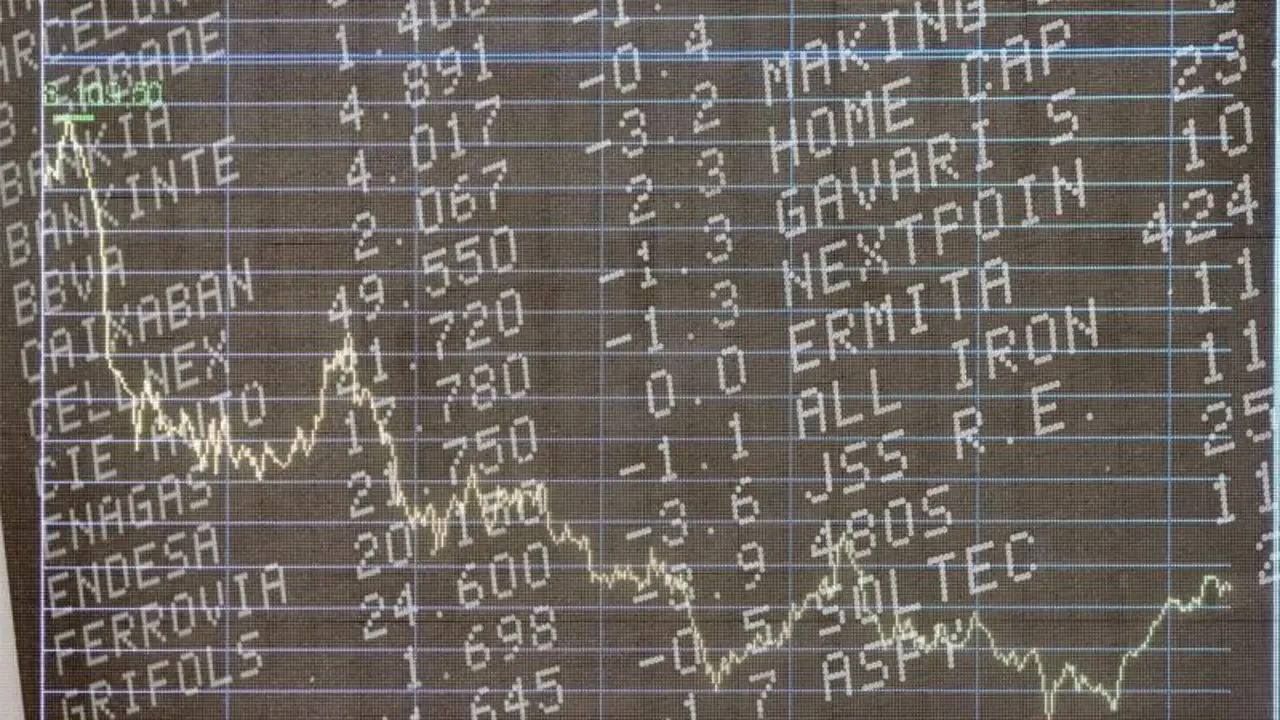 CELLN
SABADE 1.408
BANKIA 4.891 -1.
BANKINTE 4.017 -0.4
BBVA 2.067 -3.2 MAKING
CAIXABAN 49.550 2.3 HOME CAP
CELLNEX 31.720 -1.3 GAVARI S 23
CIE AUTO 17.780 -1.3 NEXTPOIN 10
ENAGAS 21.750 0.0 ERMITA 424
ENDESA 20.180 -1.1 ALL IRON 11
FERROVIA 24.600 -3.6 JSS R.E. 11
GRIFOLS 1.698 -3.9 480S 25
645 -0.5 SOLTEC 11
1 7 ASPY